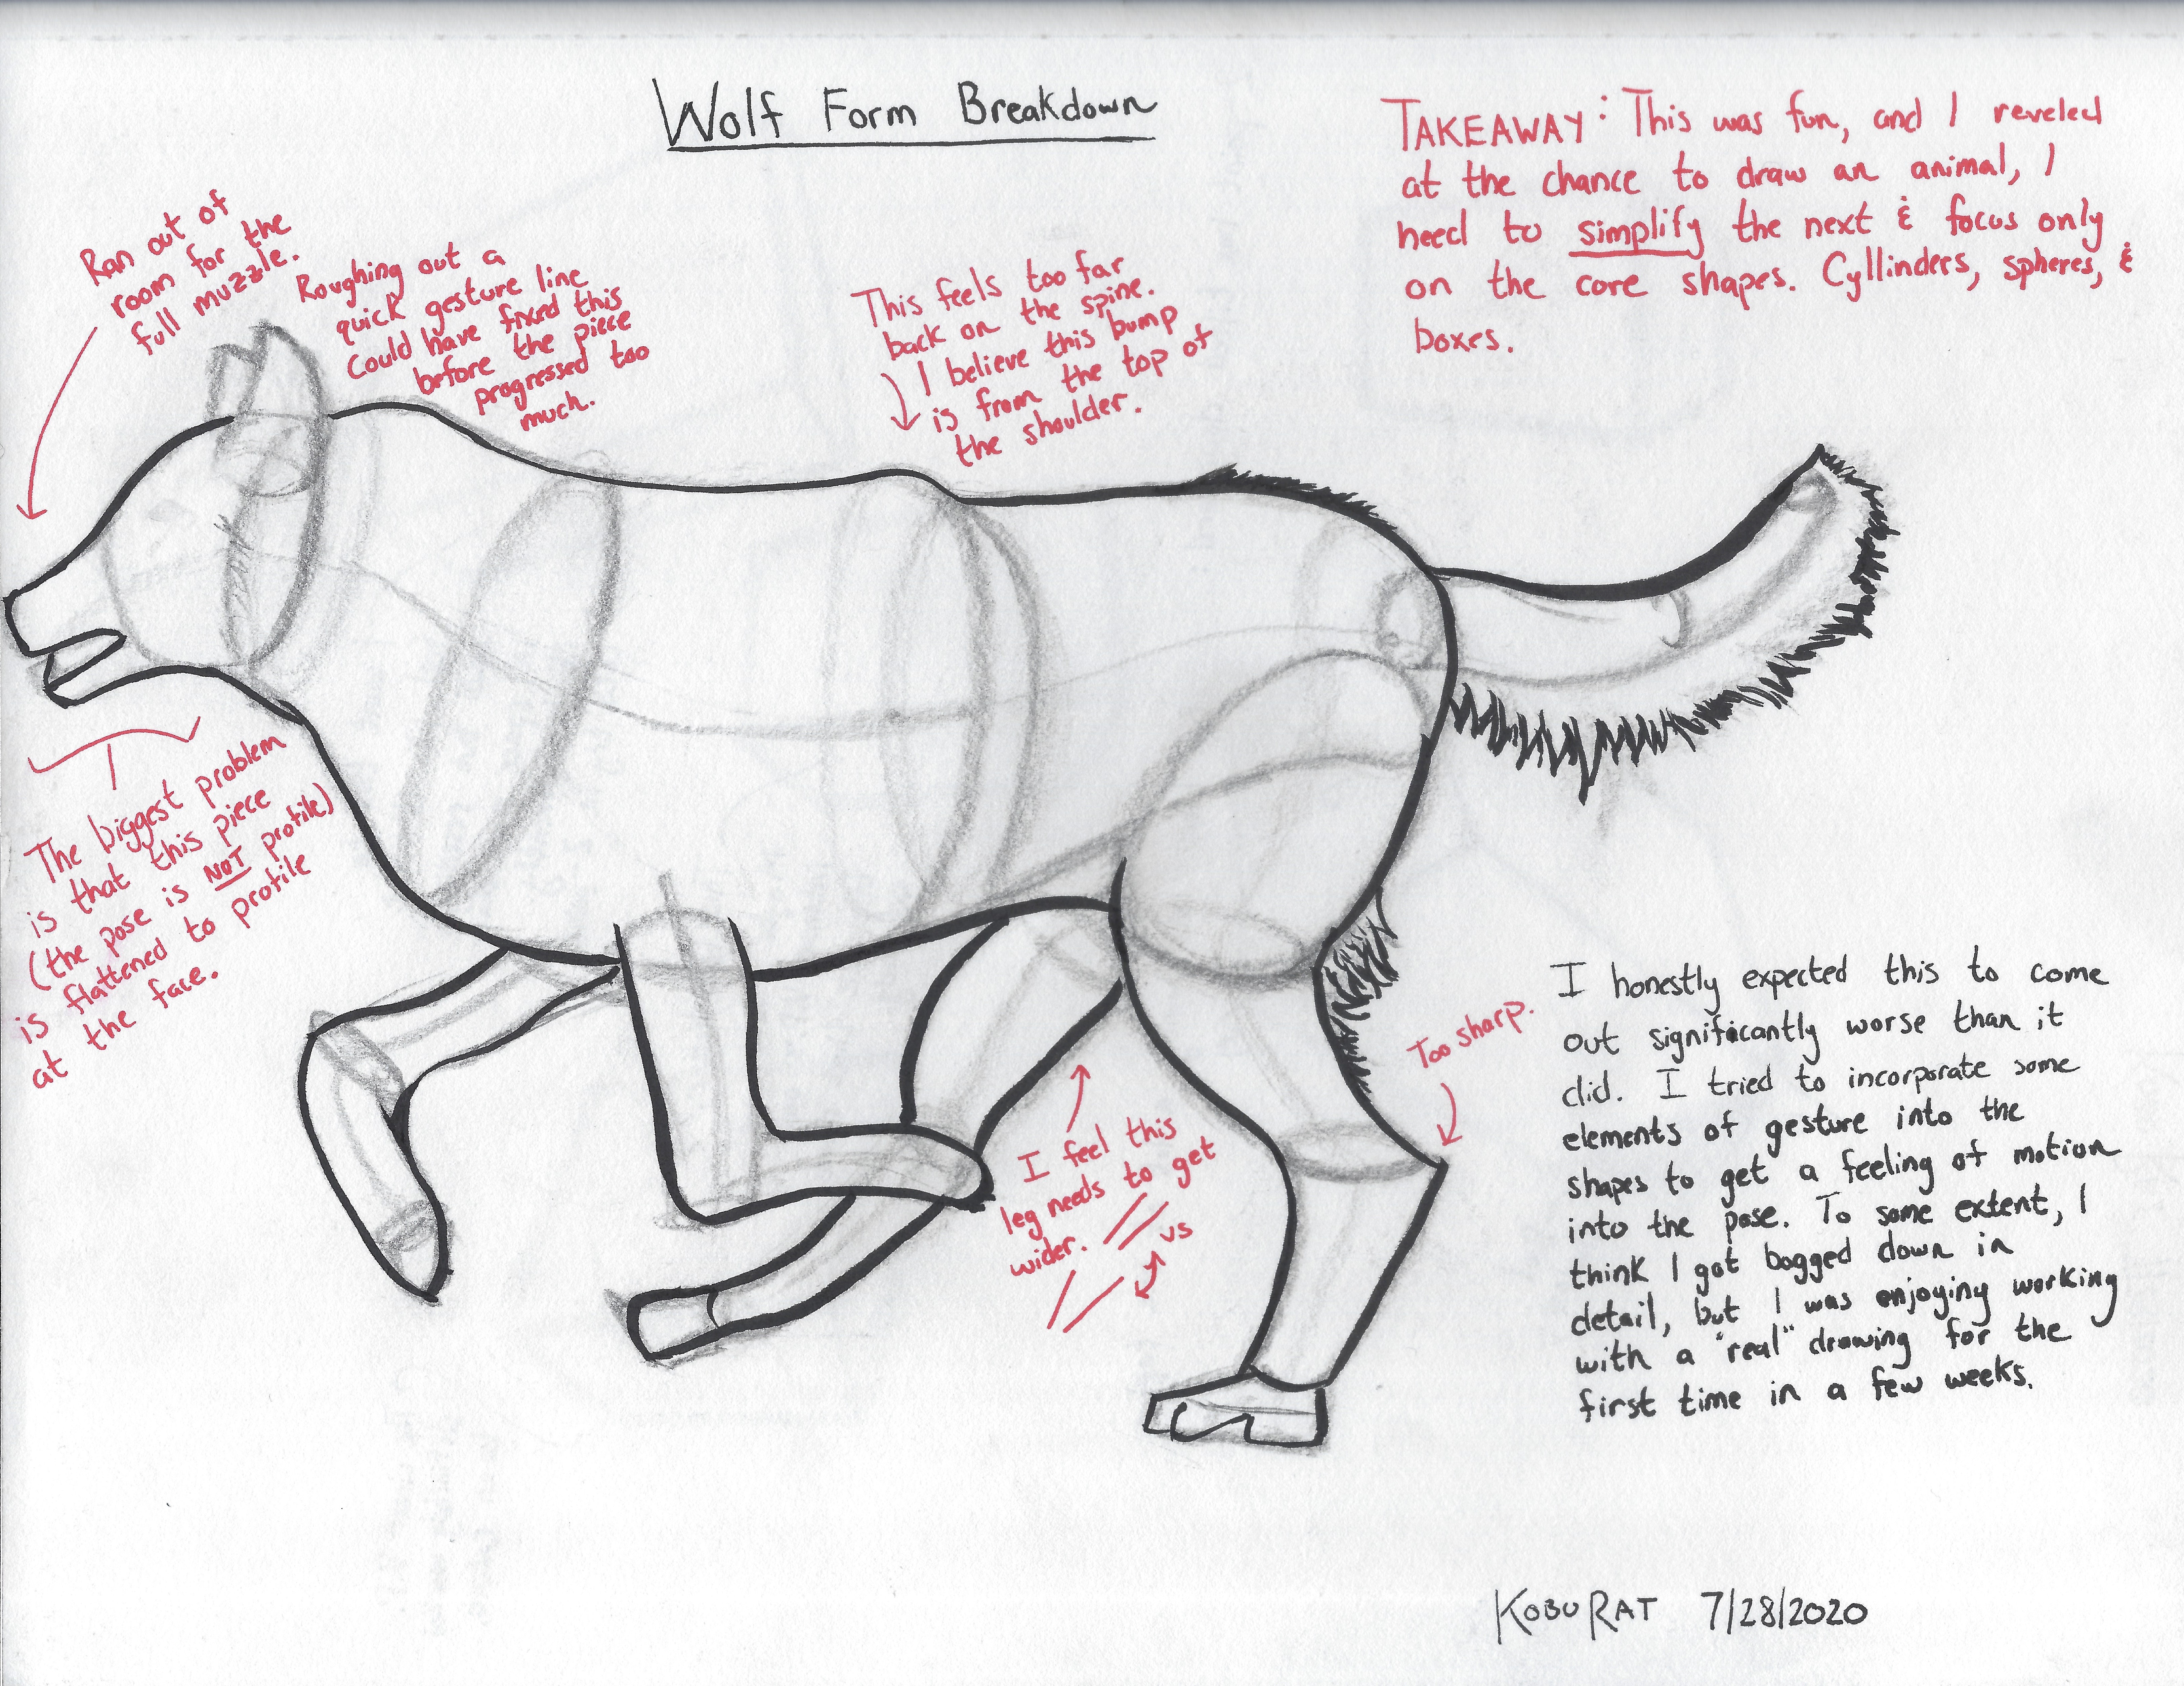 Wolf Form Breakdown
TAKEAWAY: This was fun, and I reveled
at the chance to draw an animal, I
need to simplify the next & focus only
on the core shapes. Cyllinders, spheres, &
boxes.
Ran out of
room for the
full muzzle.
Roughing out a
quick gesture line
could have fixed this
before the piece
progressed too
much.
This feels too far
back on the spine.
I believe this bump
is from the top of
the shoulder.
The biggest problem
is that this piece
(the pose is NOT profile)
is flattened to profile
at the face.
I feel this
leg needs to get
wider.
vs
Too sharp.
I honestly expected this to come
out significantly worse than it
did. I tried to incorporate some
elements of gesture into the
shapes to get a feeling of motion
into the pose. To some extent, I
think I got bogged down in
detail, but I was enjoying working
with a "real" drawing for the
first time in a few weeks.
KOBU RAT 7/28/2020